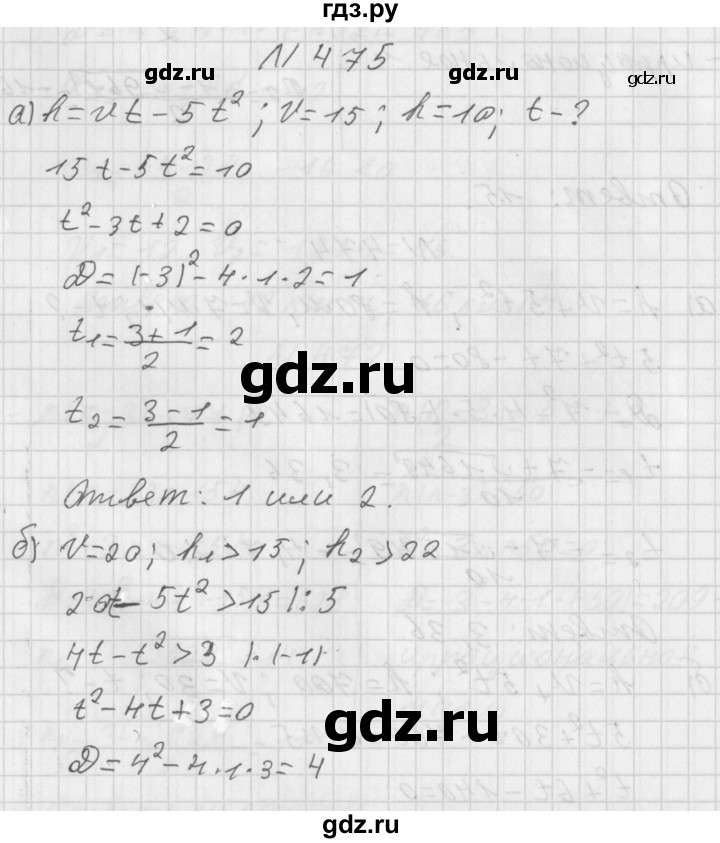 гдз.ру
N 475
gdz.ru gdz.ru gdz.ru
а) h = vt - 5t²; v = 15; h = 10; t - ?
15t - 5t² = 10
t² - 3t + 2 = 0
D = (-3)² - 4·1·2 = 1
t₁ = (3+1)/2 = 2
gdz.ru
t₂ = (3-1)/2 = 1
Ответ: 1 или 2.
б) v = 20; h₁ > 15; h₂ > 22
20t - 5t² > 15 |: 5
4t - t² > 3 |·(-1)
t² - 4t + 3 = 0
gdz.ru
D = 4² - 4·1·3 = 4
gdz.ru